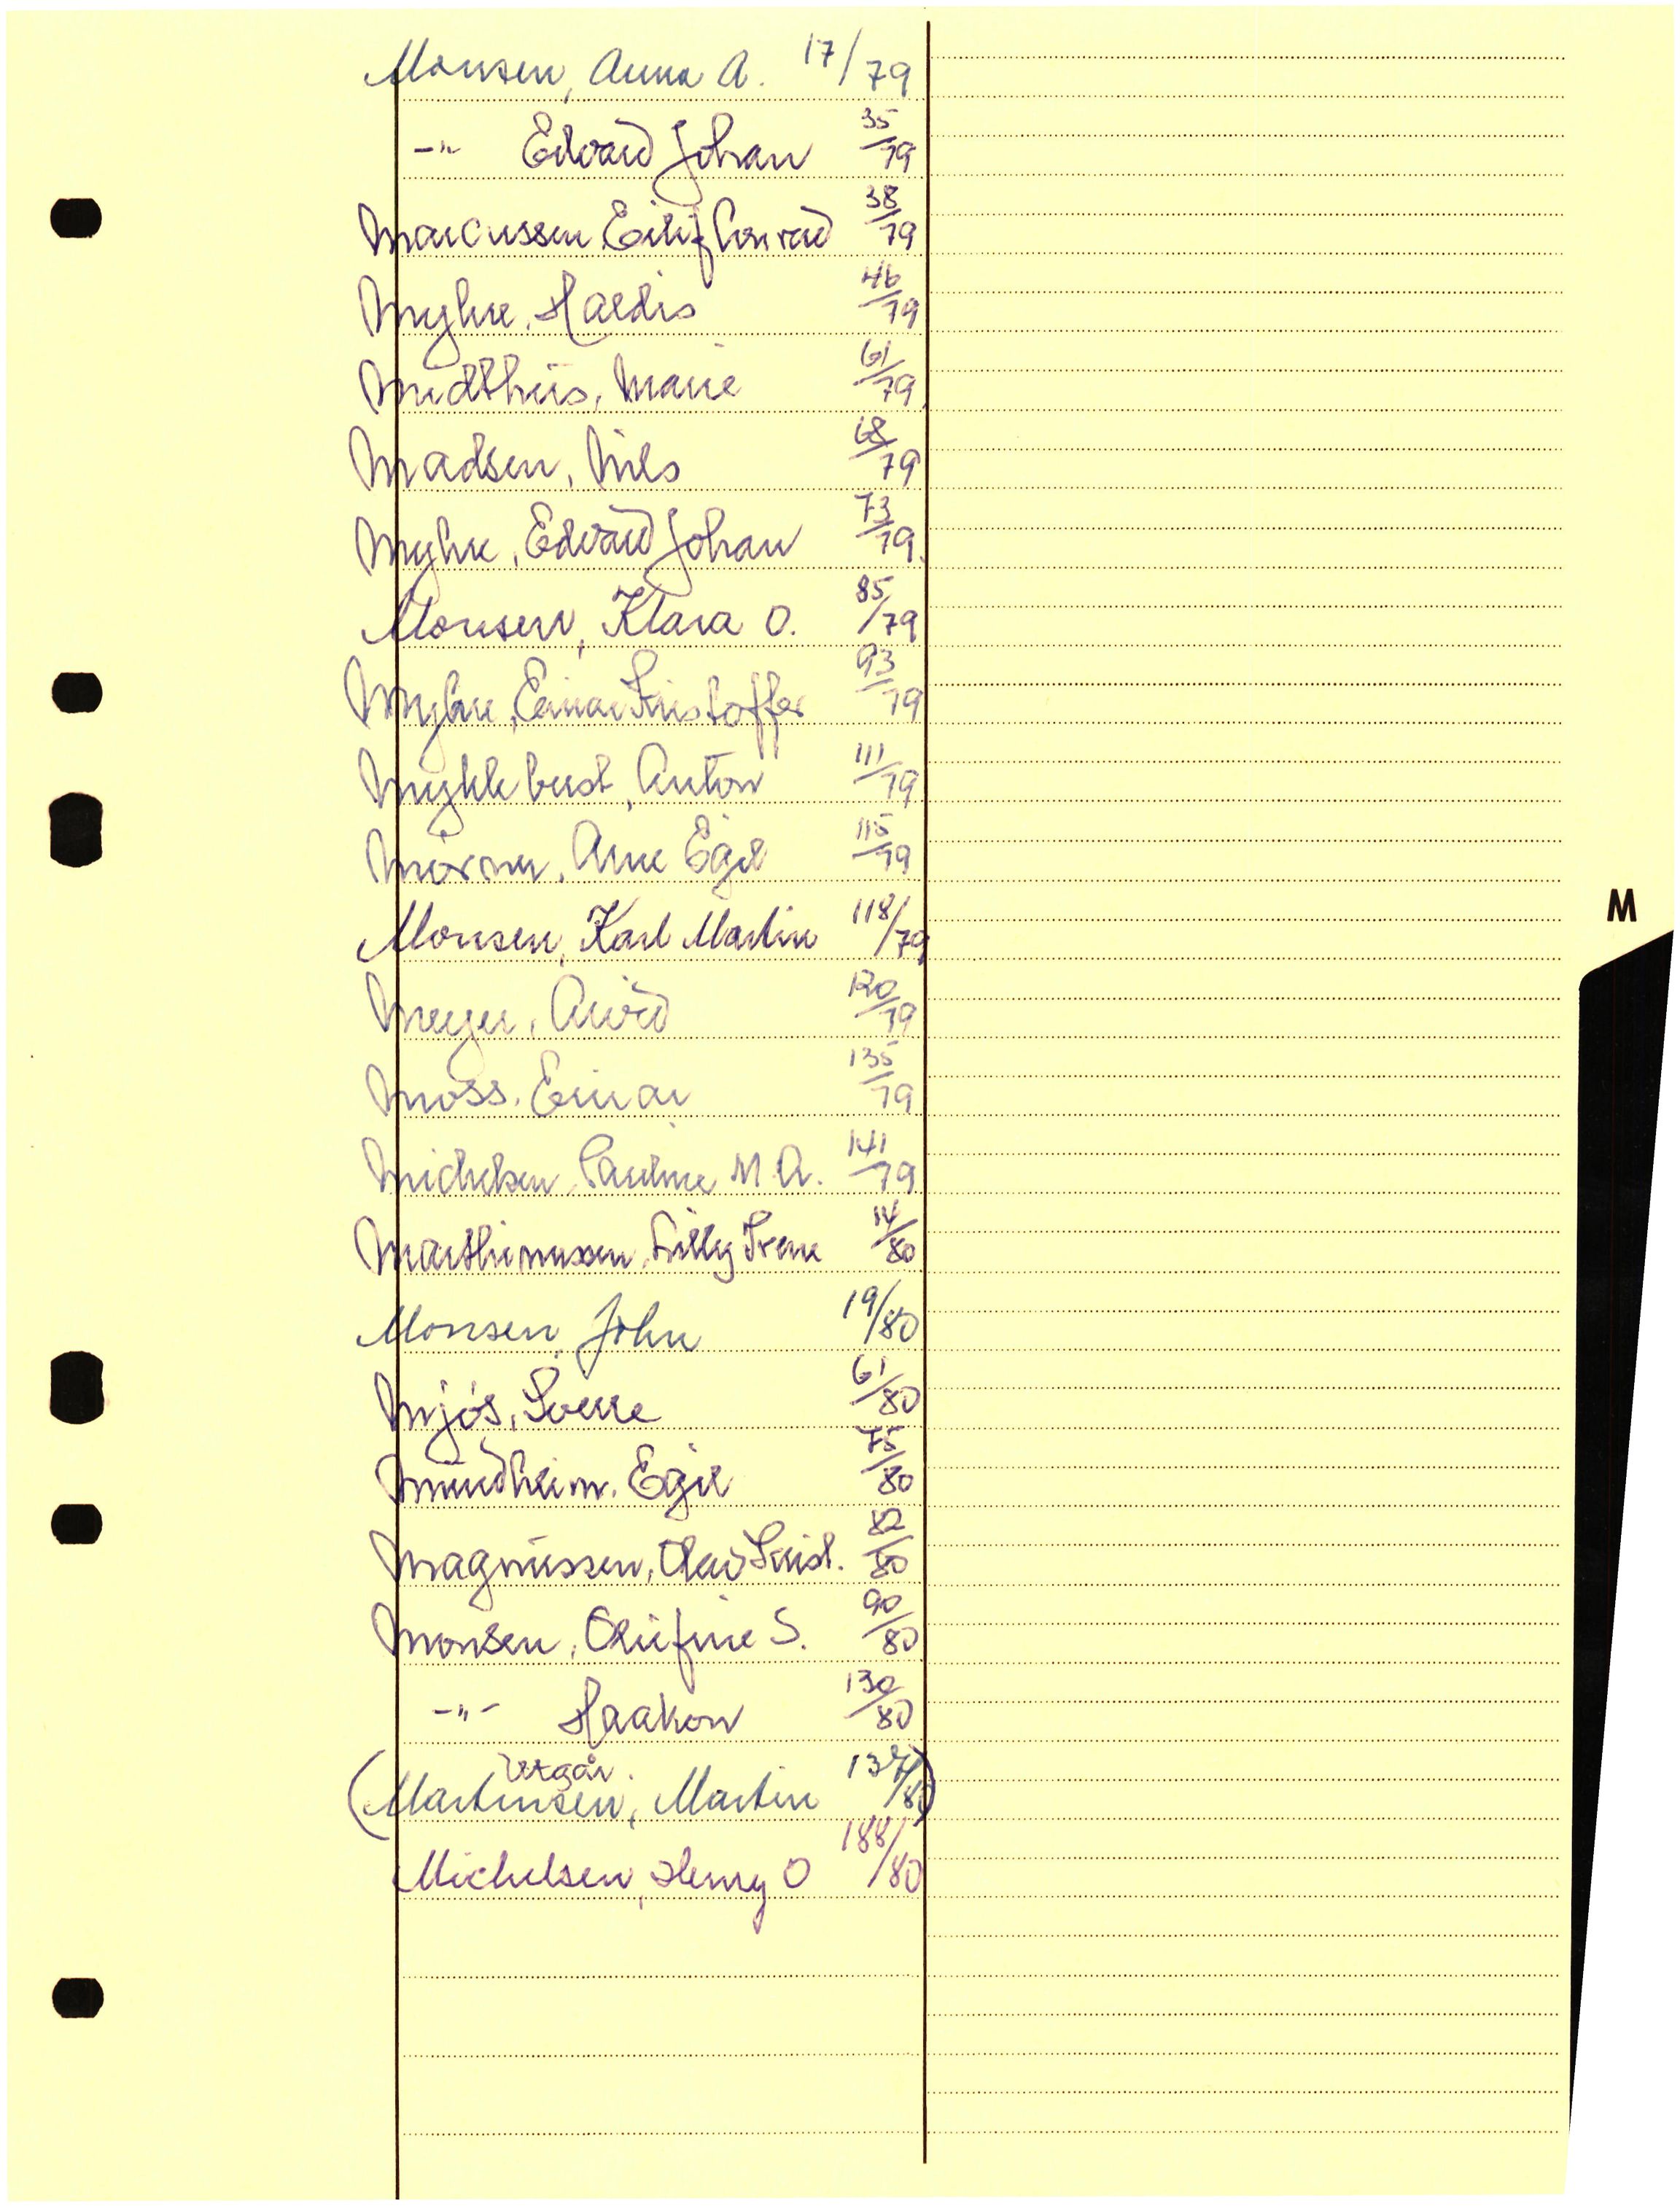 Monsen, Anna A. 17/79
-"- Edvard Johan 35/79
Marcussen, Eilif Conrad 38/79
Myhre, Haldis 46/79
Midthus, Marie 61/79
Madsen, Nils 68/79
Myhre, Edvard Johan 73/79
Monsen, Klara O. 85/79
Myhre, Einar Kristoffer 93/79
Myklebust, Anton 111/79
Arne Egil 115/79
Monsen, Karl Martin 118/79
M
Meyer, Arvid 120/79
Moss, Einar 135/79
Michelsen, Pauline M.A. 141/79
Marthinussen, Lilly Irene 14/80
Monsen, John 19/80
Mjøs, Sverre 61/80
Mundheim, Egil 75/80
Magnussen, Olav Krist. 82/80
Monsen, Olufine S. 90/80
-"- Haakon 130/80
Utgår.
(Martinsen, Martin /80)
Michelsen, Henry O 188/80